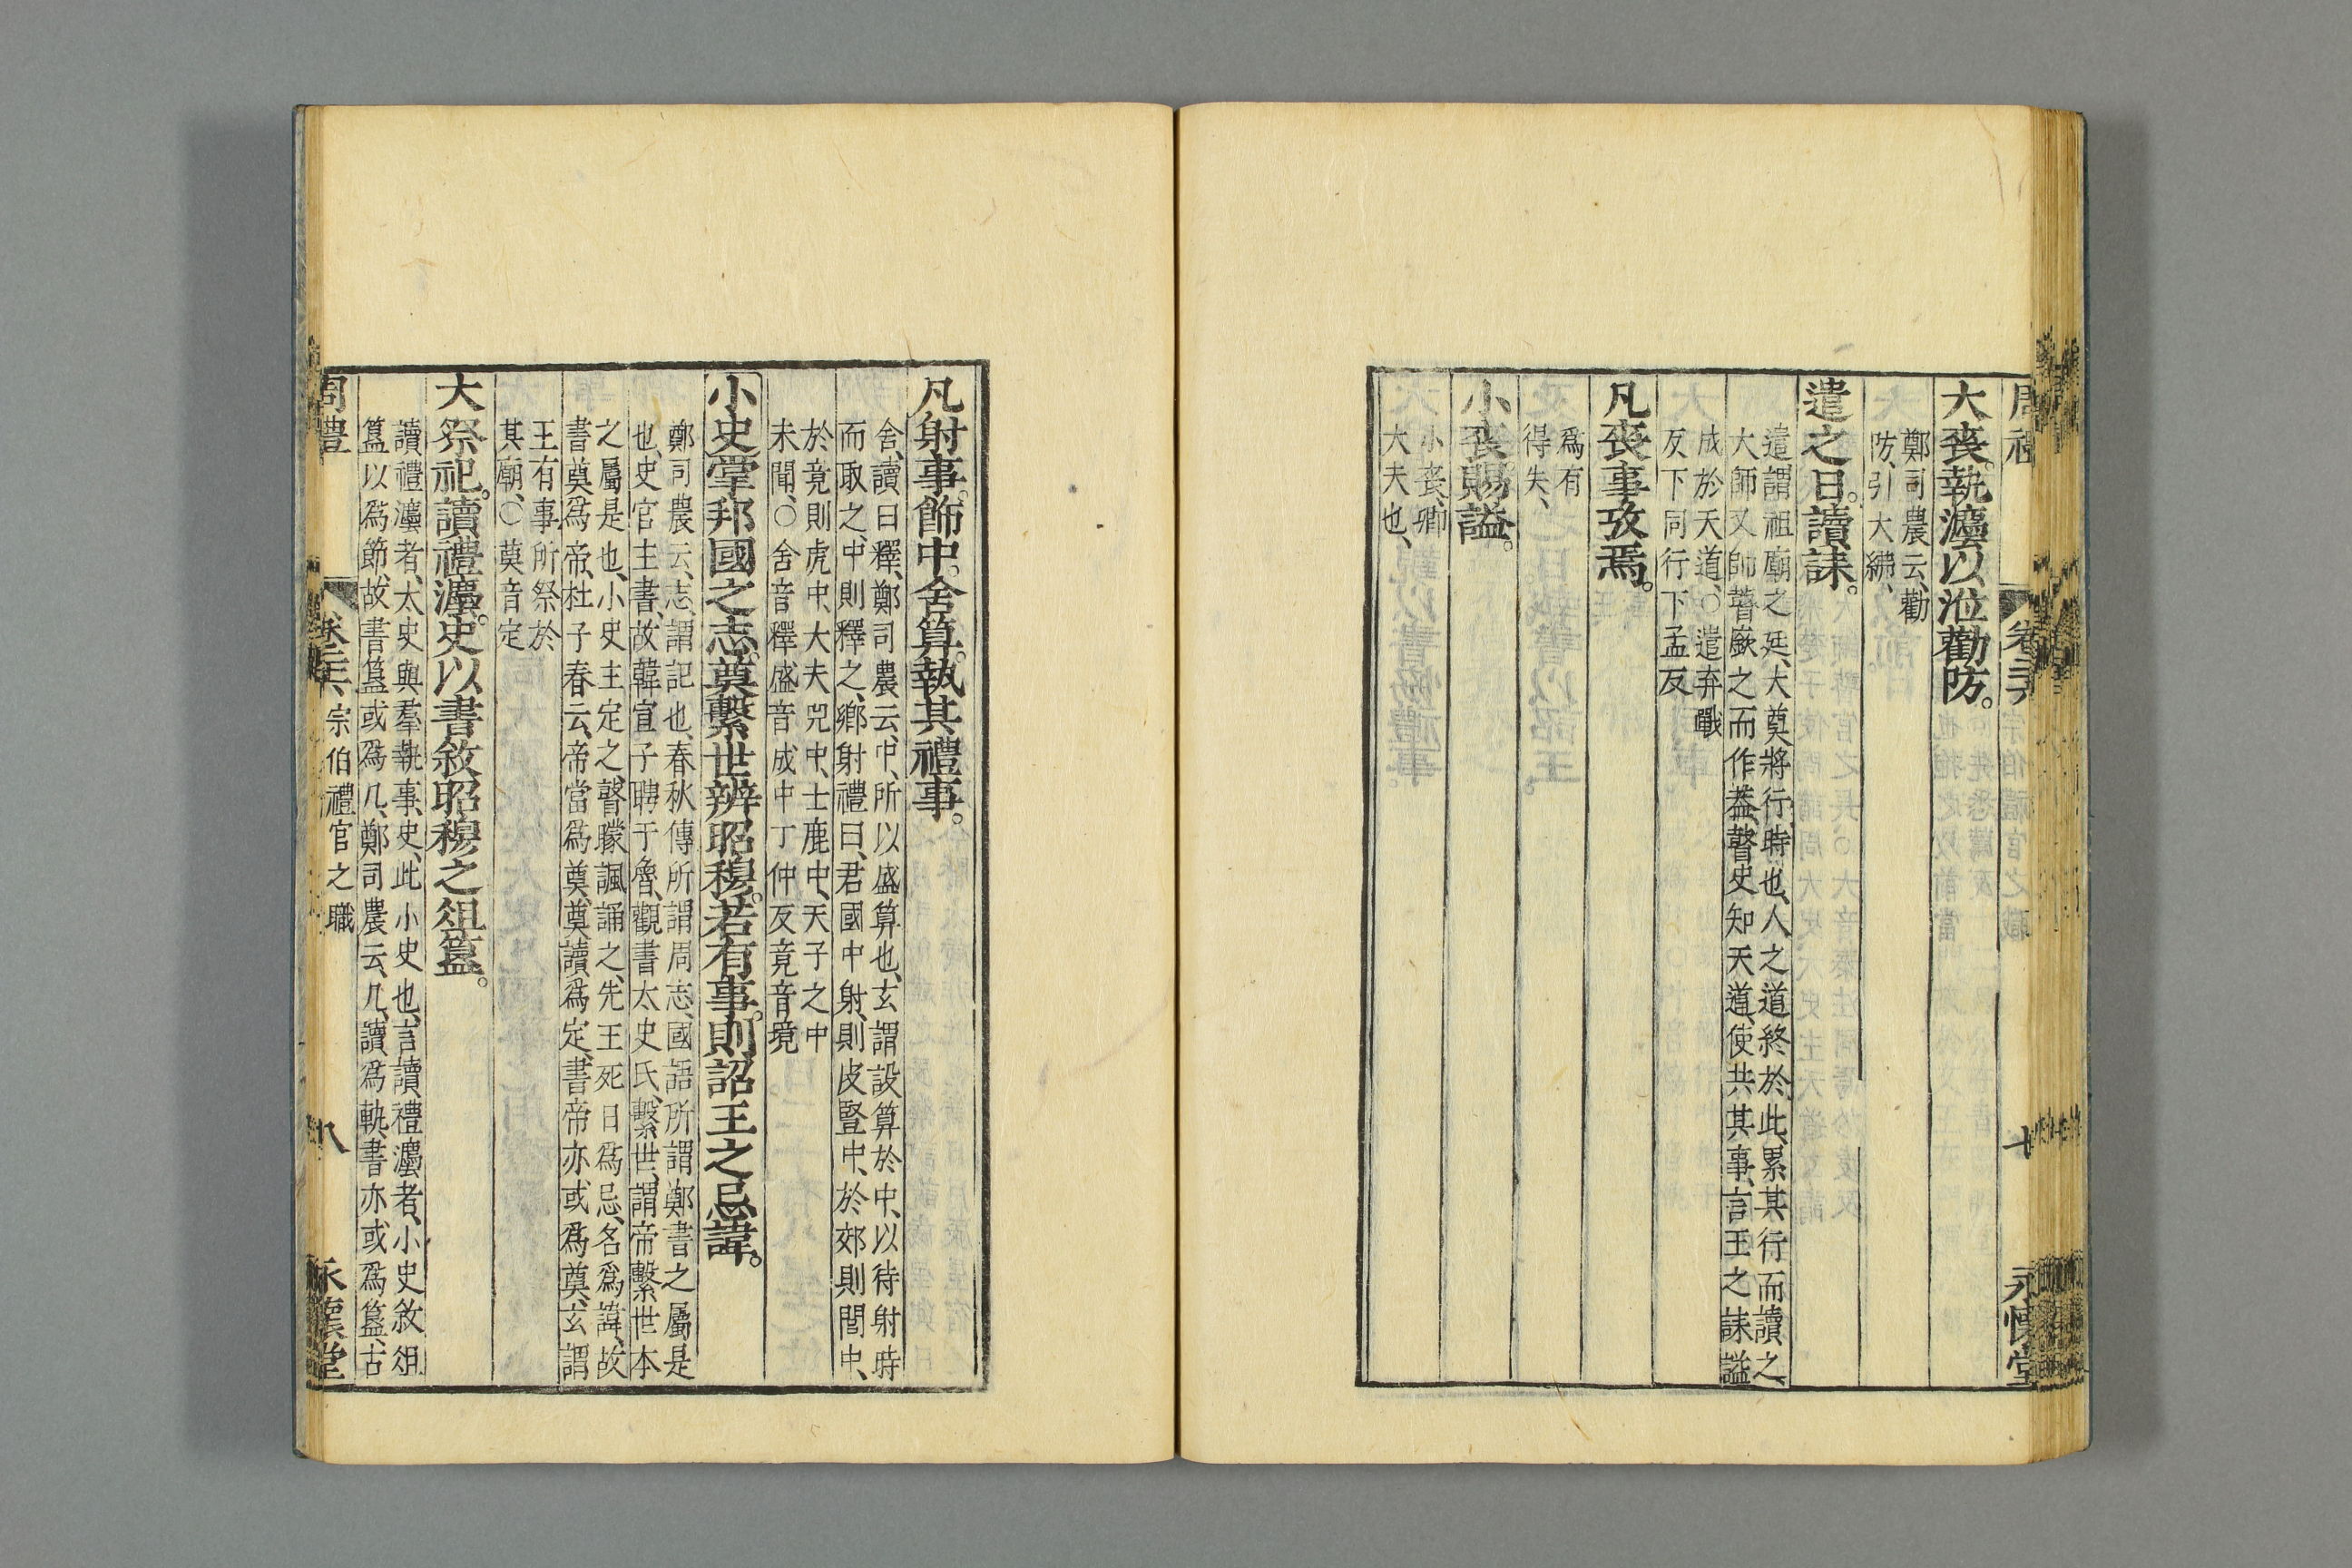 大喪執灋以涖勸防。
鄭司農云、勸
防、引大紼、
遣之日。讀誄。
遣謂祖廟之廷、大奠將行時也、人之道終於此、累其行而讀之、
大師又帥瞽廞之而作諡、瞽史知天道、使共其事、言王之誄諡
成於天道、○遣弃戰
反下同行下孟反
凡喪事攷焉。
爲有
得失、
小喪賜諡。
小喪、卿
大夫也、
凡射事。飾中。舍算。執其禮事。
舍、讀曰釋、鄭司農云、中、所以盛算也、玄謂設算於中、以待射時
而取之、中則釋之、鄉射禮曰、君國中射、則皮豎中、於郊則閭中、
於竟則虎中、大夫兕中、士鹿中、天子之中
未聞、○舍音釋盛音成中丁仲反竟音境
小史掌邦國之志。奠繫世。辨昭穆。若有事。則詔王之忌諱。
鄭司農云、志、謂記也、春秋傳所謂周志、國語所謂鄭書之屬是
也、史官主書、故韓宣子聘于魯、觀書太史氏、繫世、謂帝繫世本
之屬是也、小史主定之、瞽矇諷誦之、先王死日爲忌、名爲諱、故
書奠爲帝、杜子春云、帝當爲奠、奠讀爲定、書帝亦或爲奠、玄謂
王有事所祭於
其廟、○奠音定
大祭祀。讀禮灋。史以書敘昭穆之俎簋。
讀禮灋者、太史與羣執事、史、此小史也、言讀禮灋者、小史敘俎
簋以爲節、故書簋或爲几、鄭司農云、几、讀爲軌、書亦或爲簋、古
周禮 卷二十六、宗伯禮官之職 八 永懷堂